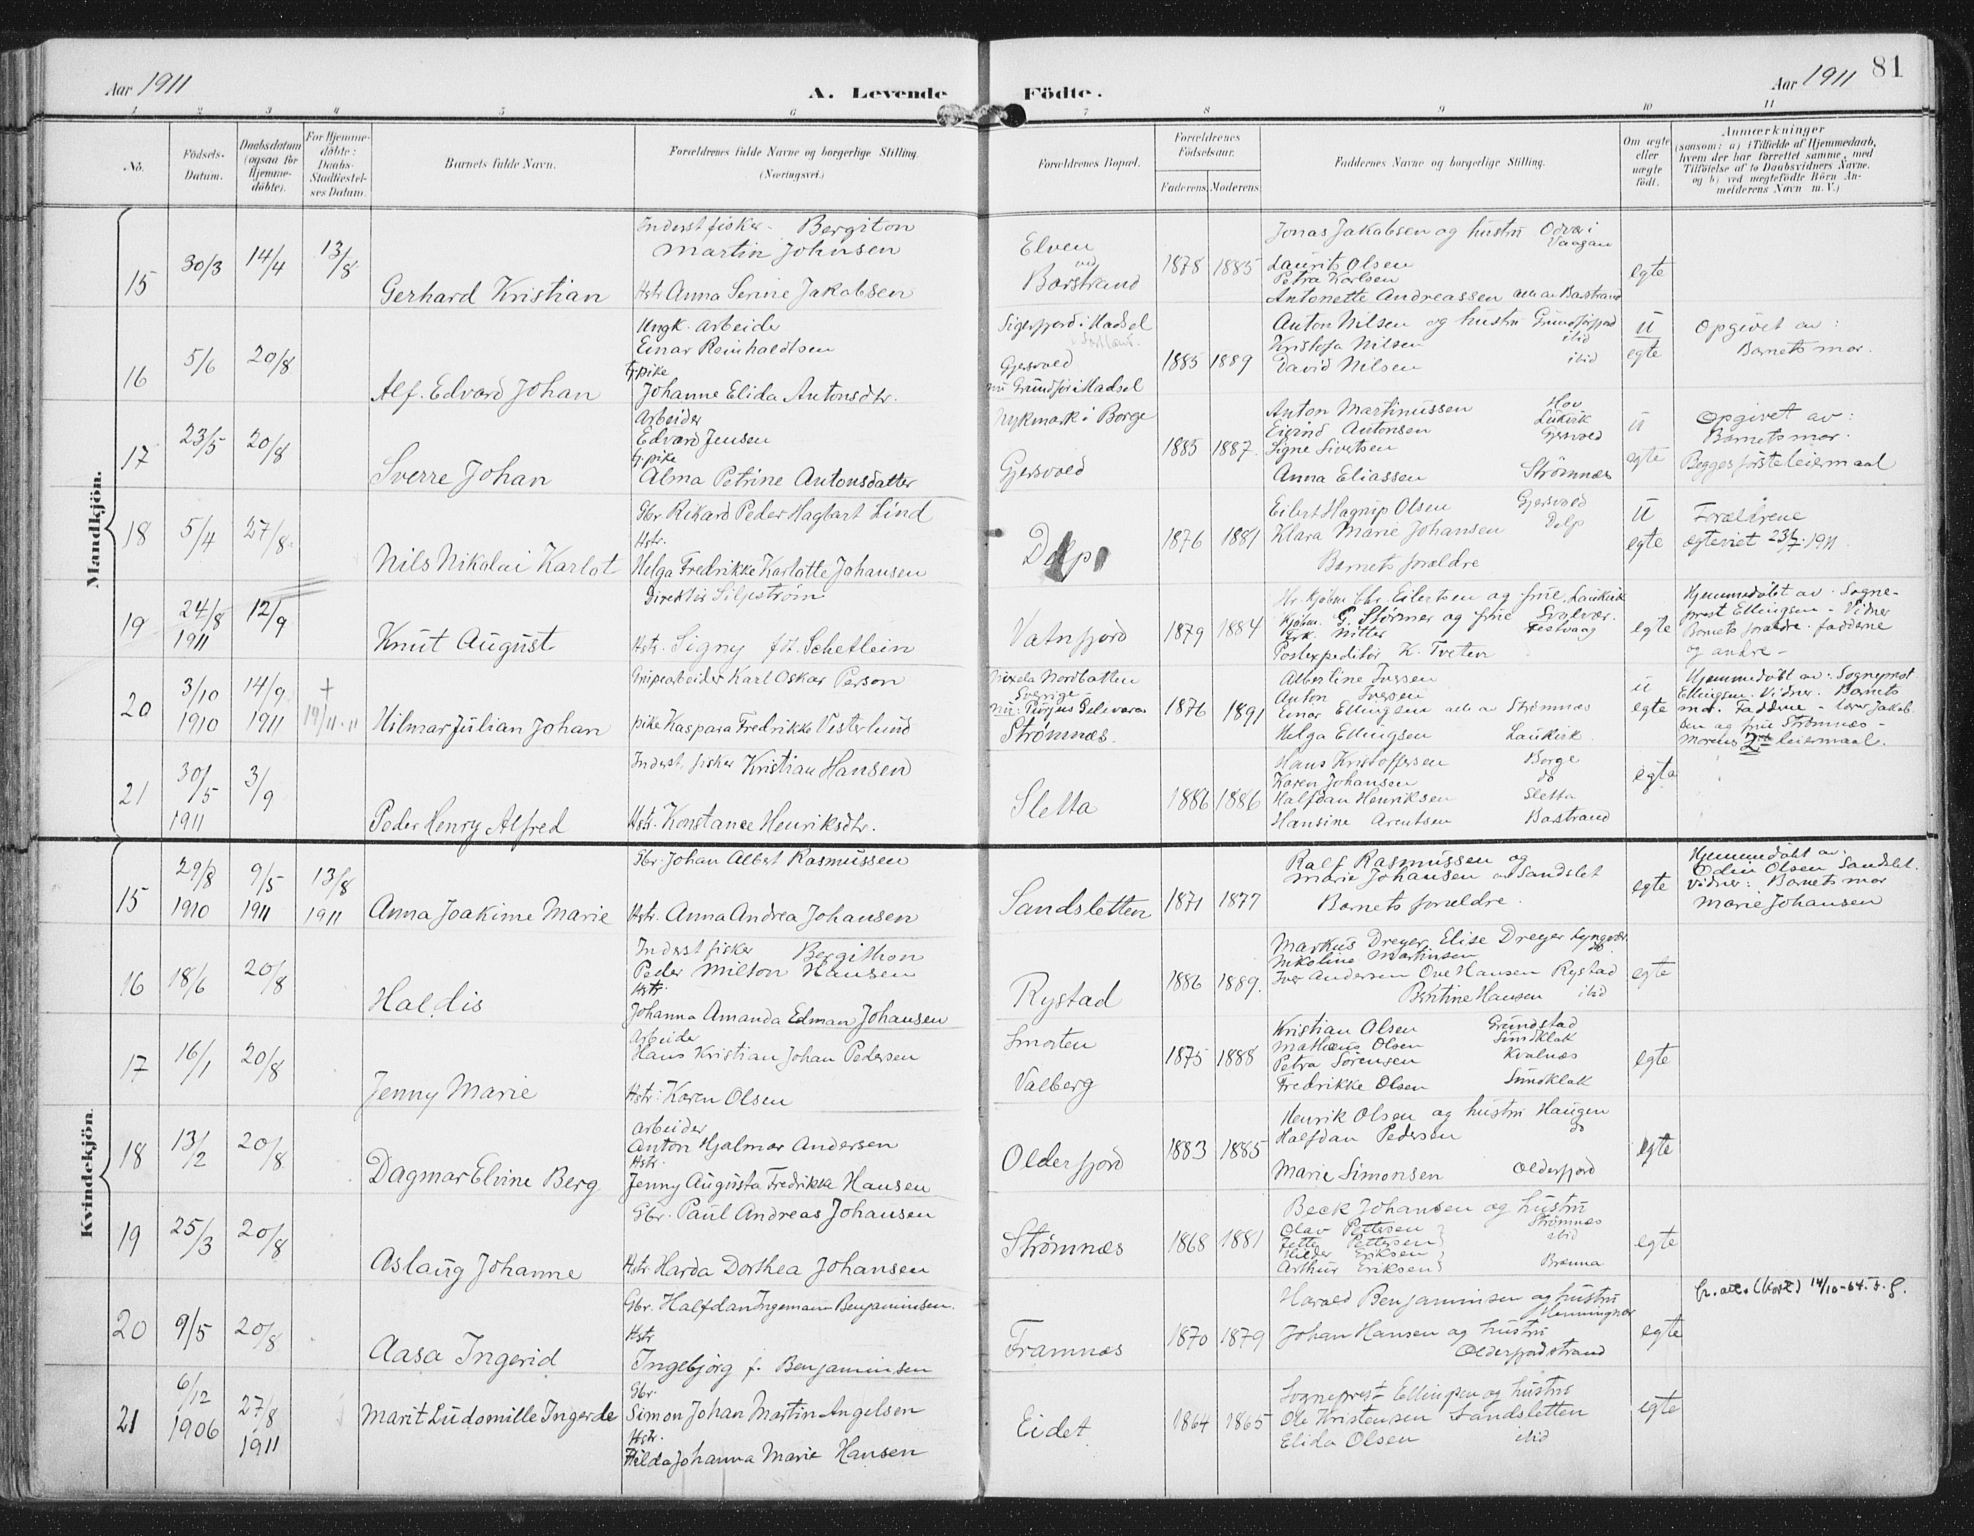 Aar 1911
A. Levende
Födte.
Aar 1911
81
1 2 3 4 5 6 7 8 9 10 11
No.
Födsels-
Datum.
Daabsdatum
(ogsaa for
Hjemme-
döbte).
For Hjemme-
döbte:
Daabs-
Stadfæstel-
ses Datum.
Barnets fulde Navn.
Forældrenes fulde Navne og borgerlige Stilling.
(Næringsvei.)
Forældrenes Bopæl.
Forældrenes
Födselsaar.
Faderens. Moderens.
Faddernes Navne og borgerlige Stilling.
Om ægte
eller
uægte
födt.
Anmærkninger
(saasom: a) i Tilfælde af Hjemmedaab,
hvem der har forrettet samme, med
Tilföielse af to Daabsvidners Navne.
og b) ved uægtefödte Börn An-
melderens Navn m. V.)
Mandkjön.
15 30/3 14/4 13/8 Gerhard Kristian
Inderst fisker Bergiton
Martin Johnsen
Hstr. Anna Serine Jakobsen
Elven
ved
Borstrand
1878 1885
Jonas Jakobsen og hustru
Vaagan
Laurits Olsen
Petra Karlsen
Antonette Andreassen alle av Bostrand
egte
16 5/6 20/8 Alf. Edvard Johan
Ungk. arbeide
Einar Reinholdtsen
tj. pike
Johanne Elida Antonsdtr.
Sigerfjord i Hadsel
Gjersvold
nu Grundfør i Hadsel
1885 1889
Anton Nilsen og hustru Grundførfjord
Kristofa Nilsen ibid
David Nilsen ibid
u
egte
Opgivet av:
Barnets mor.
17 23/5 20/8 Sverre Johan
Arbeider
Edvard Jensen
tj. pike
Alma Petrine Antonsdatter
Nykmark i Borge
Gjersvold
1885 1887.
Anton Martinussen Hov
Eivind Antonsen Laukvik
Signe Sivertsen Gjersvold
Anna Eliassen Strømnæs
u
egte
Opgivet av:
Barnets mor.
Begges første leiermaal
18 5/4 27/8 Nils Nikolai Karlot
Gbr. Rikard Peder Hagbart Lind
Hstr.
Helga Fredrikke Karlotte Johansen
Delp
1876 1881
Eilert Hagrup Olsen Gjersvold
Klara Marie Johansen Delp
Barnets forældre
u
egte
Forældrene
egteviet 23/7 1911
19 24/8
1911 12/9 Knut August
Direktør Silfström
Hstr. Signy föt. Schetlein
Vatnfjord
1879 1884
Hr. kjøbm Chr. Eilertsen og frue, Laukvik
Kjøbm. G. Størmer og frue Svolvær.
Frk. Nitter Festvaag
Postexpeditør K. Tveten
egte
Hjemmedøbt av Sogne-
prest Ellingsen - Vidner
Barnets forældre. fadderne
og andre -
20 3/10
1910 14/9
1911 † 19/11-11 Hilmar Julian Johan
Karl Oskar Person
pike Kaspara Fredrikke Vesterlund
Norrbotten
Sverige -
nu:
Strømnæs.
1876 1891
Albertine Iversen
Anton Iversen
Einar Ellingsen alle av Strømnæs
Helga Ellingsen Laukvik.
u
egte
Hjemmedøbt av: Sogneprest
Ellingsen. Vidner. Barnets
mor. Fadderne - lærer Jakob-
sen og frue Strømnæs -
Morens 2det leiermaal.
21 30/5
1911 3/9 Peder Henry Alfred
Inderst. fisker Kristian Hansen
Hstr. Konstanse Henriksdtr.
Sletta
1886 1886
Hans Kristoffersen Borge
Karen Johansen do
Halfdan Henriksen Sletta
Hansine Arentsen Bastrand
egte
Kvindekjön.
15 29/8
1910 9/5
1911 13/8
1911 Anna Joakime Marie
Gbr. Johan Albert Rasmussen
Hstr. Anna Andrea Johansen
Sandsletten
1871 1877
Ralf Rasmussen og
Marie Johansen av Sandslet
Barnets forældre.
egte
Hjemmedøbt av:
Odin Olsen Sandslet.
Vidner: Barnets mor
Marie Johansen
16 18/6 20/8 Haldis
Inderst fisker Bergithon
Peder Milton Hansen
Hstr.
Johanna Amanda Edman Johansen
Rystad
1886 1889.
Markus Dreyer, Elise Dreyer Lyngvær.
Nikoline Martinsen do
Iver Andersen Ove Hansen Rystad
Bentine Hansen ibid
egte
17 16/1 20/8 Jenny Marie
Arbeide
Hans Kristian Johan Pedersen
Hstr: Karen Olsen
Smorten
Valberg
1875 1888
Kristian Olsen Grundstad
Mathæus Olsen Sundklak
Petra Sørensen Kvalnæs
Fredrikke Olsen Sundklak
egte
18 13/2 20/8 Dagmar Elvine Berg
Arbeider
Anton Hjalmar Andersen
Hstr.
Jenny Augusta Fredrikke Hansen
Olderfjord
1883 1885
Henrik Olsen og hustru Haugen
Halfdan Pedersen do
Marie Simonsen Olderfjord
egte
19 25/3 20/8 Aslaug Johanne
Gbr. Paul Andreas Johansen
Hstr Harda Dorthea Johansen
Strømnæs
1868 1881
Beck Johansen og hustru
Strømnæs
Olav Pettersen ibid
Jette Pettersen
Hilder Eriksen
Arthur Eriksen Brenna
egte
20 9/5 20/8 Aasa Ingerid
Gbr. Halfdan Ingemann Benjaminsen.
Hstr
Ingebjørg f. Benjaminsen
Framnæs
1870 1879
Harald Benjaminsen og hustru
Henningvær
Johan Hansen og hustru
Olderfjordstrand
egte
(kort) 14/10-64.
21 6/12
1906 27/8
1911 Marit Ludomille Ingerde
Gbr.
Simon Johan Martin Angelsen
Hstr.
Hilda Johanna Marie Hansen
Eidet
1864 1865
Sogneprest Ellingsen og hustru
Ole Kristensen Sandsletten
Elida Olsen ibid
egte